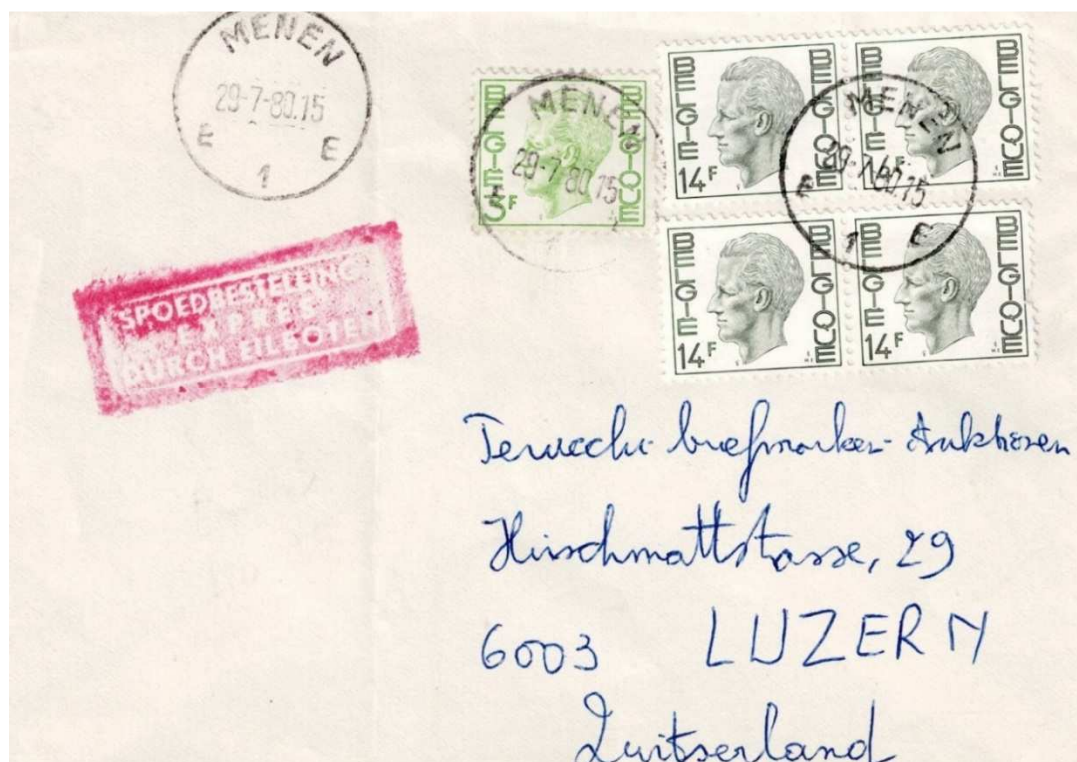 MENEN
29-7-80.15
E 1 E
BELGIE BELGIQUE
3F
MENEN
29-7-80.15
1
BELGIE BELGIQUE
14F
BELGIE BELGIQUE
MENEN
29-7-80.15
E 1 E
BELGIE BELGIQUE
14F
BELGIE BELGIQUE
14F
SPOEDBESTELLING
EXPRES
DURCH EILBOTEN
briefmarken-Auktionen
Hirschmattstrasse, 29
6003 LUZERN
Zwitserland